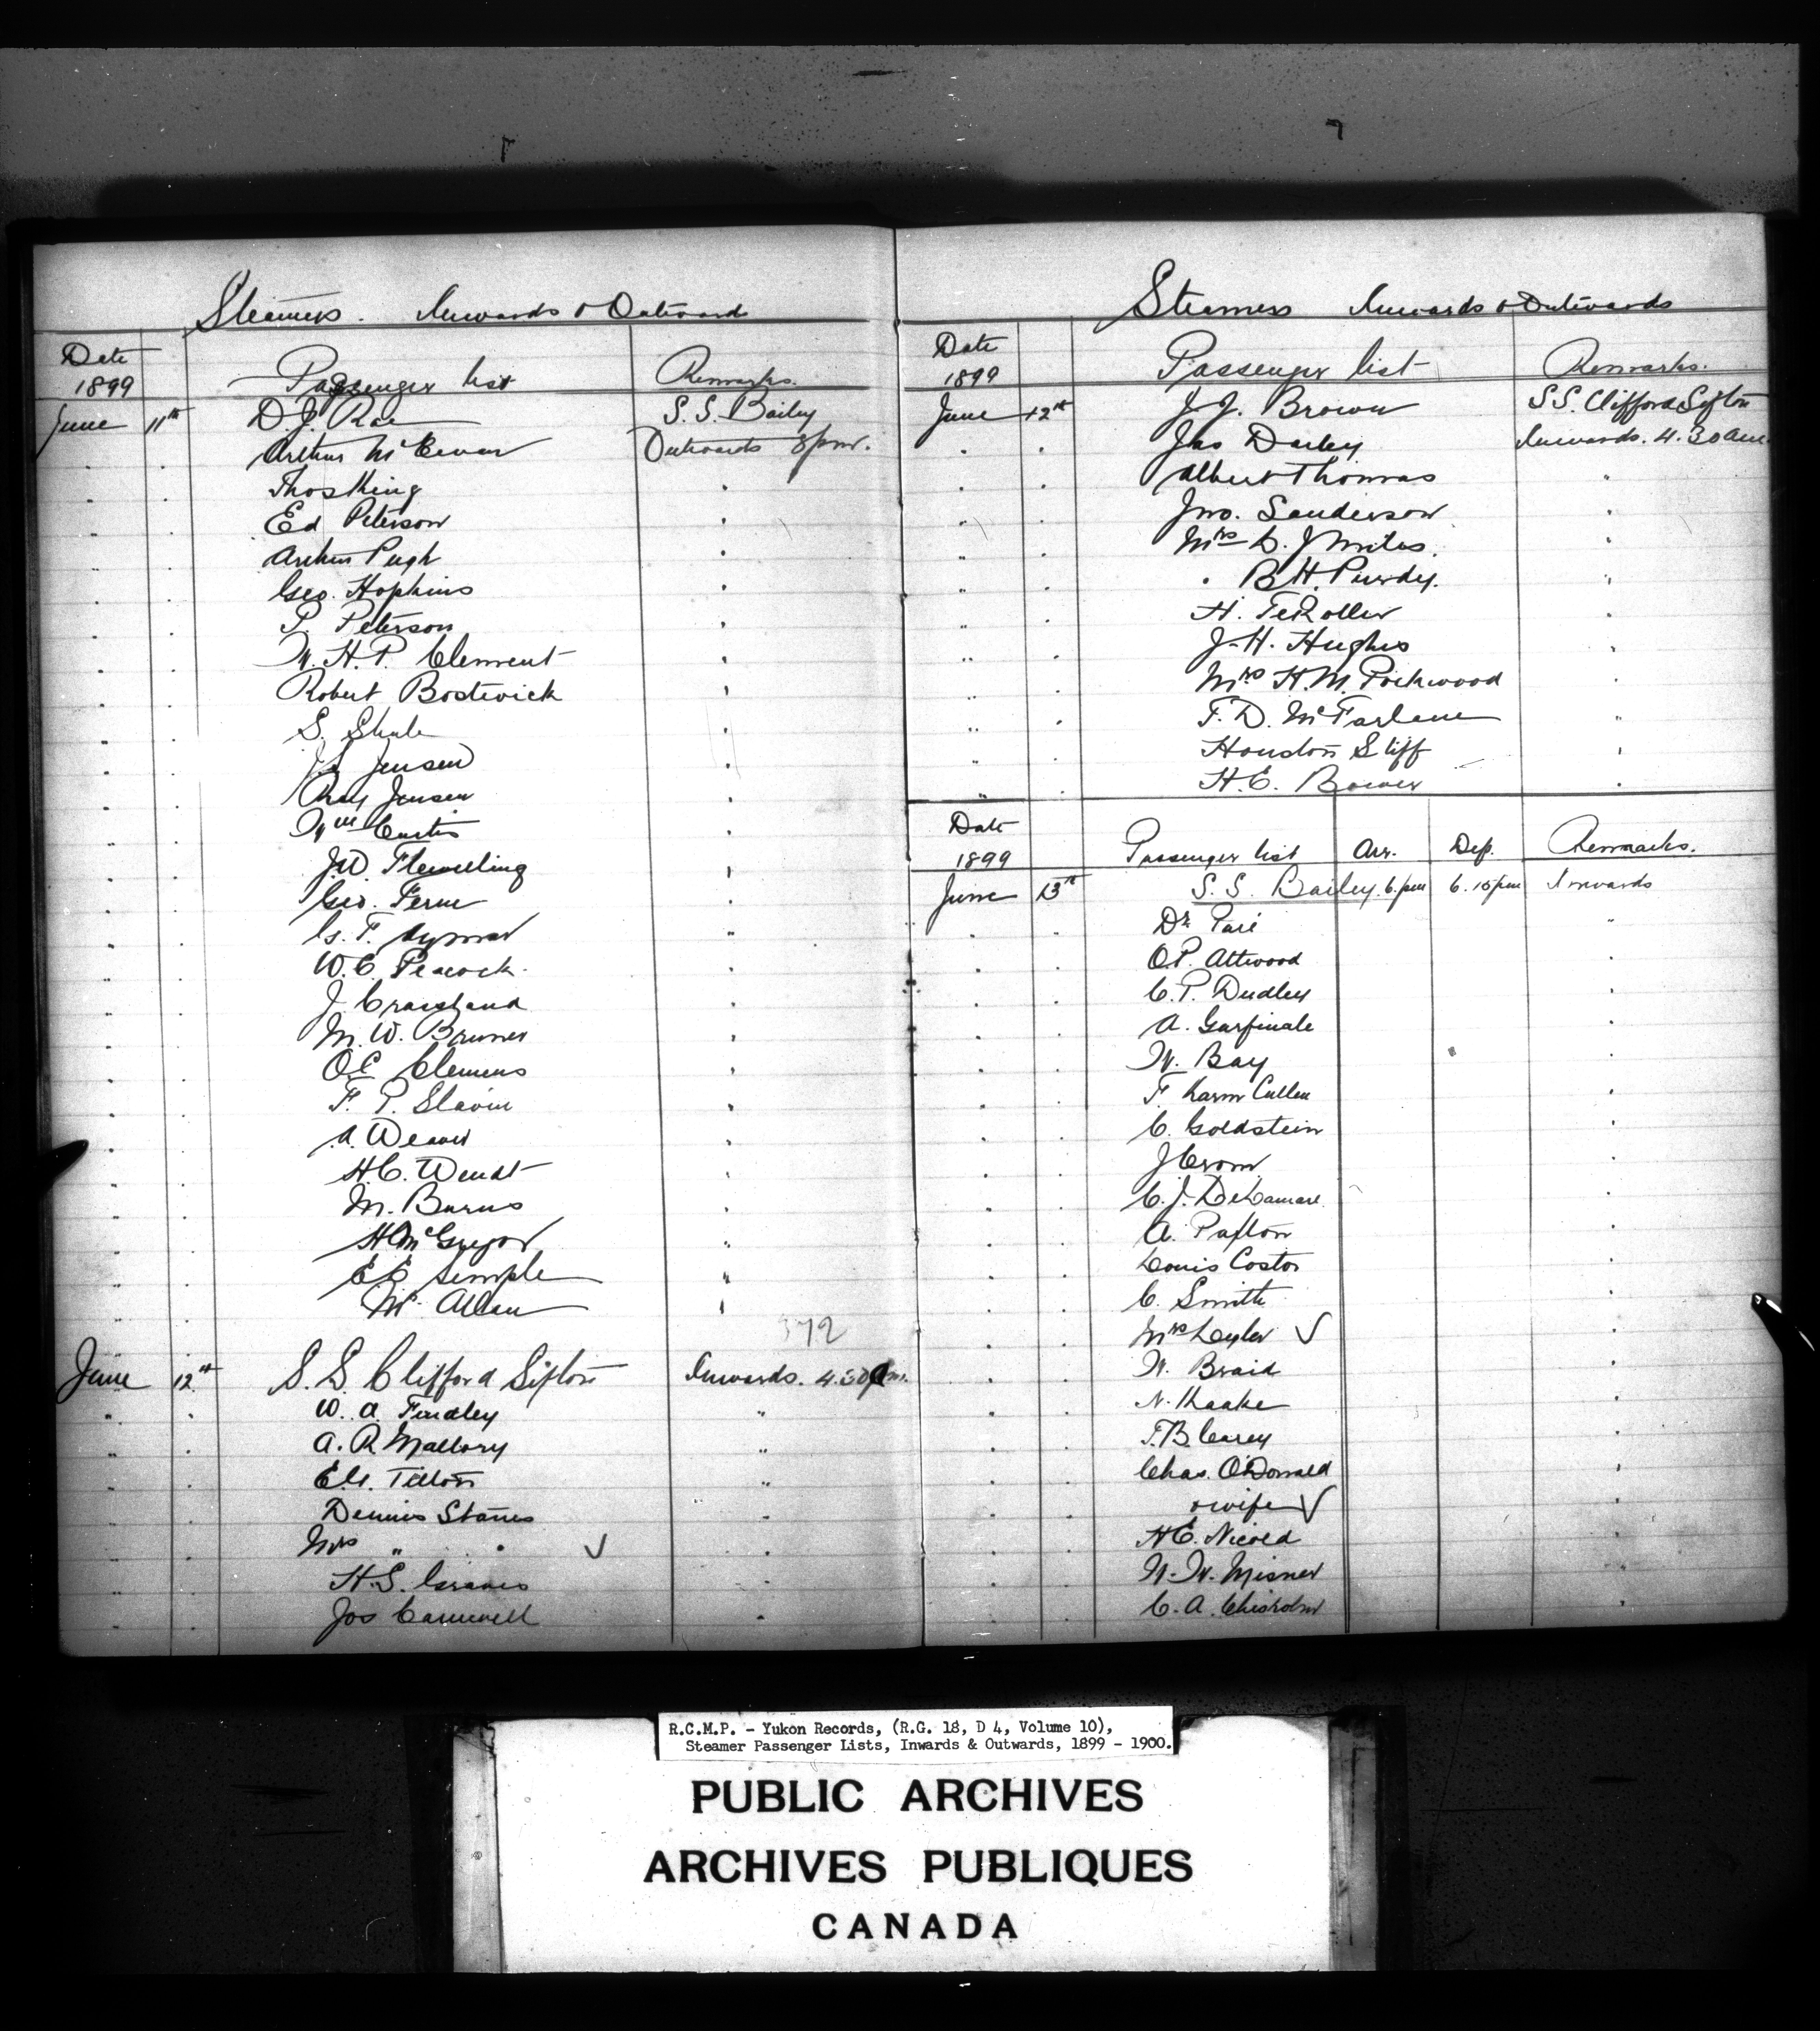 Steamers. Inwards & Outwards
Date
1899
Passenger list
Remarks.
June 11th D. J. Rae S.S. Bailey
Arthur McEwan Outwards 8 pm.
Thos King
Ed Peterson
Arthur Pugh
Geo. Hopkins
P. Peterson
W. H. P. Clement
Robert Bostwick
S. Shule
Jensen
Ray Jensen
Wm Curtis
J.W. Flewelling
Geo. Ferne
G. F.
W. C. Peacock.
J. Crawshand
M. W. Bruner
O.E. Clemens
F. P. Slavin
A. Weaver
H.C. Wendt
M. Burns
H McGregor
E E Semple
Mc Allan
372
June 12th S. S. Clifford Sifton Inwards. 4.30 am.
W. A. Findley
A. R Mallory
E.G. Tilton
Dennis Stanes
Mrs " "
H. S. Graves
Jos Camwell
Steamers Inwards & Outwards
Date
1899
Passenger list
Remarks.
June 12th J. J. Brown S.S. Clifford Sifton
Jas Darley Inwards. 4.30 am
Albert Thomas
Jno. Sanderson
Mrs D. J Miles.
" B. H. Purdy.
H. TeRoller
J. H. Hughes
Mrs H. M. Pockwood
F. D. McFarlane
Houston Stiff
H. E. Bower
Date
1899
Passenger list Arr. Dep. Remarks.
June 13th S. S. Bailey. 6. pm 6.15 pm Inwards
Dr Paré
O.P. Attwood
C. P. Dudley
A. Garfinale
W. Bay
F. Larm Cullen
C. Goldstein
J Crom
C. J. DeLamare
A. Paxton
Louis Costor
C. Smith
Mrs Leyler
W. Braid
N. Kaake
F. B. Carey
Chas. O'Donnald
& wife
H E. Nicold
N. W. Misner
C. A. Chisholm
R.C.M.P. - Yukon Records, (R.G. 18, D 4, Volume 10),
Steamer Passenger Lists, Inwards & Outwards, 1899 - 1900.
PUBLIC ARCHIVES
ARCHIVES PUBLIQUES
CANADA